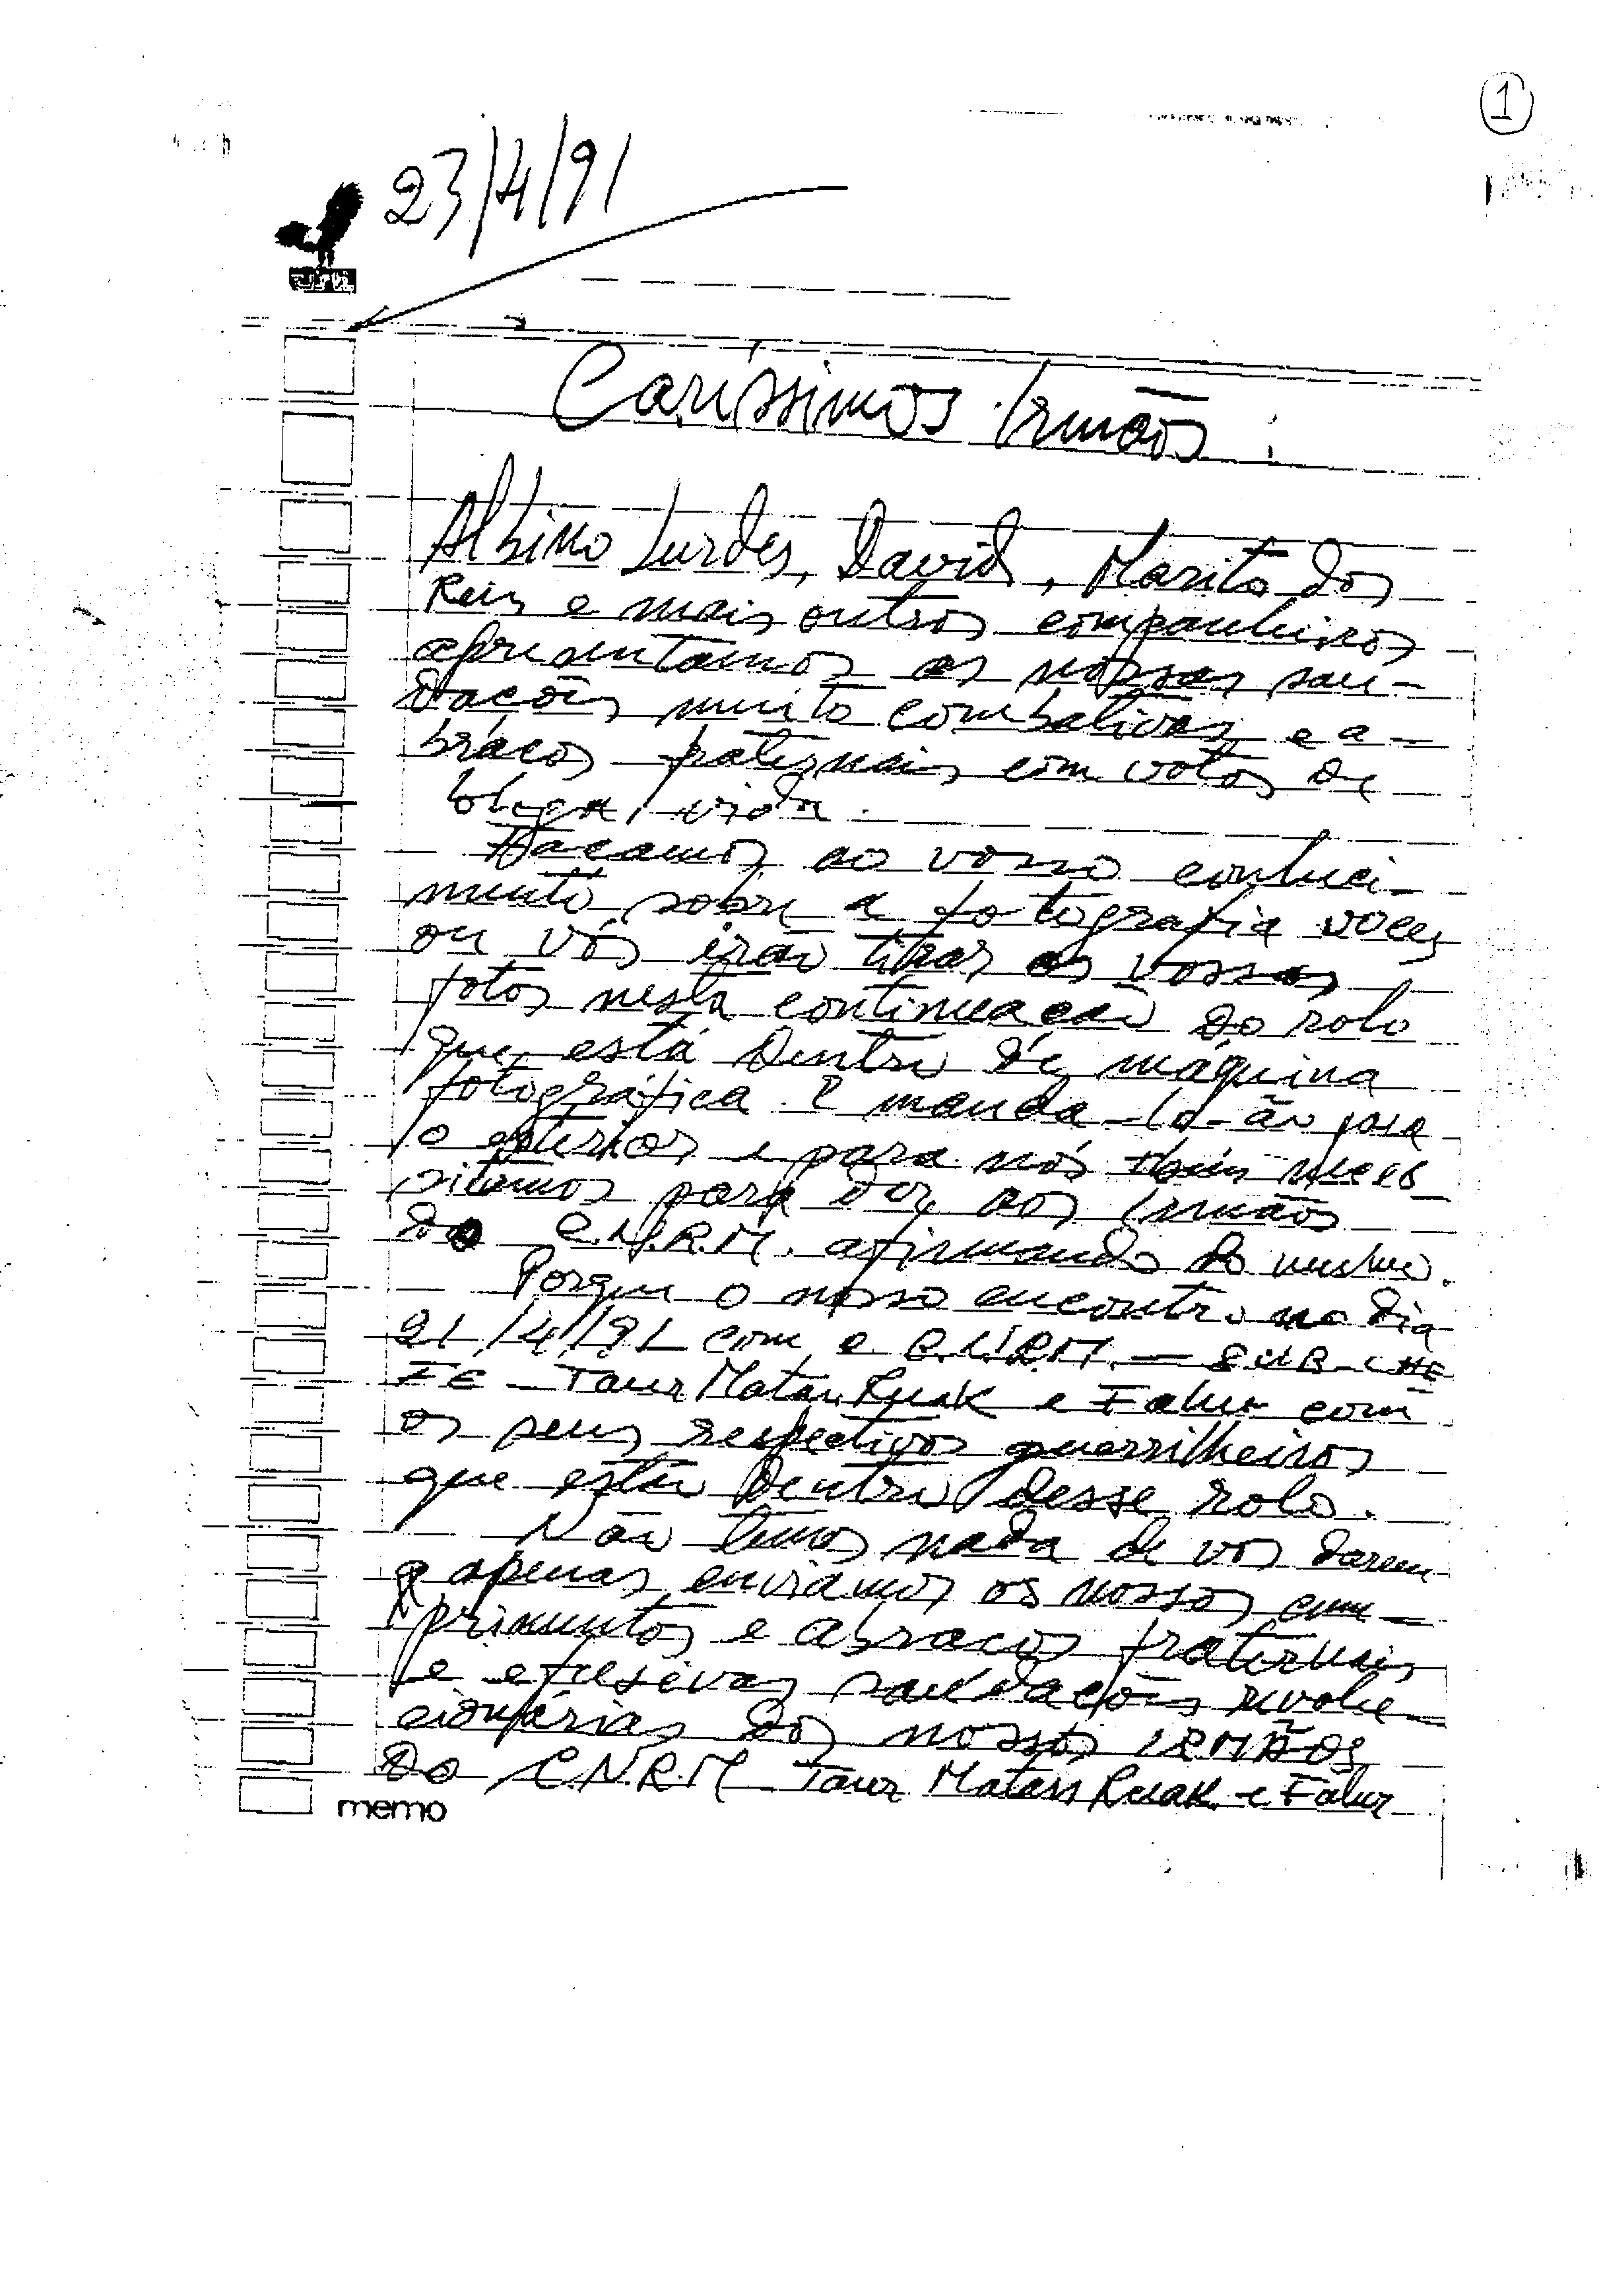 1
23/4/91
Caríssimos Irmãos:
Albino Lurdes, David, Marito dos
Reis e mais outros companheiros
apresentamos as nossas sau-
dacões muito combativas e a-
braços fraternais com votos de
vida.
ao vosso conheci-
mento sobre a fotografia voces
ou vós irão tirar as vossas
fotos nesta continuação do rolo
que está dentro de máquina
fotográfica. E manda-lo-ão para
o exterior e para nós
sitamos para dar aos Irmãos
do C.N.R.M. afirmando do mesmo.
Porque o nosso encontro no dia
21/4/91 com o C.N.R.M. — SUB-CHE
FE - Taur Matan Ruak e Falur com
os seus respectivos guerrilheiros
que estão dentro desse rolo.
Não temos nada de vos darem
e apenas enviamos os nossos cum-
primentos e abraços fraternais
e efusivas saudações revolu-
cionárias dos nossos IRMÃOS
do C.N.R.M Taur Matan Ruak e Falur
memo